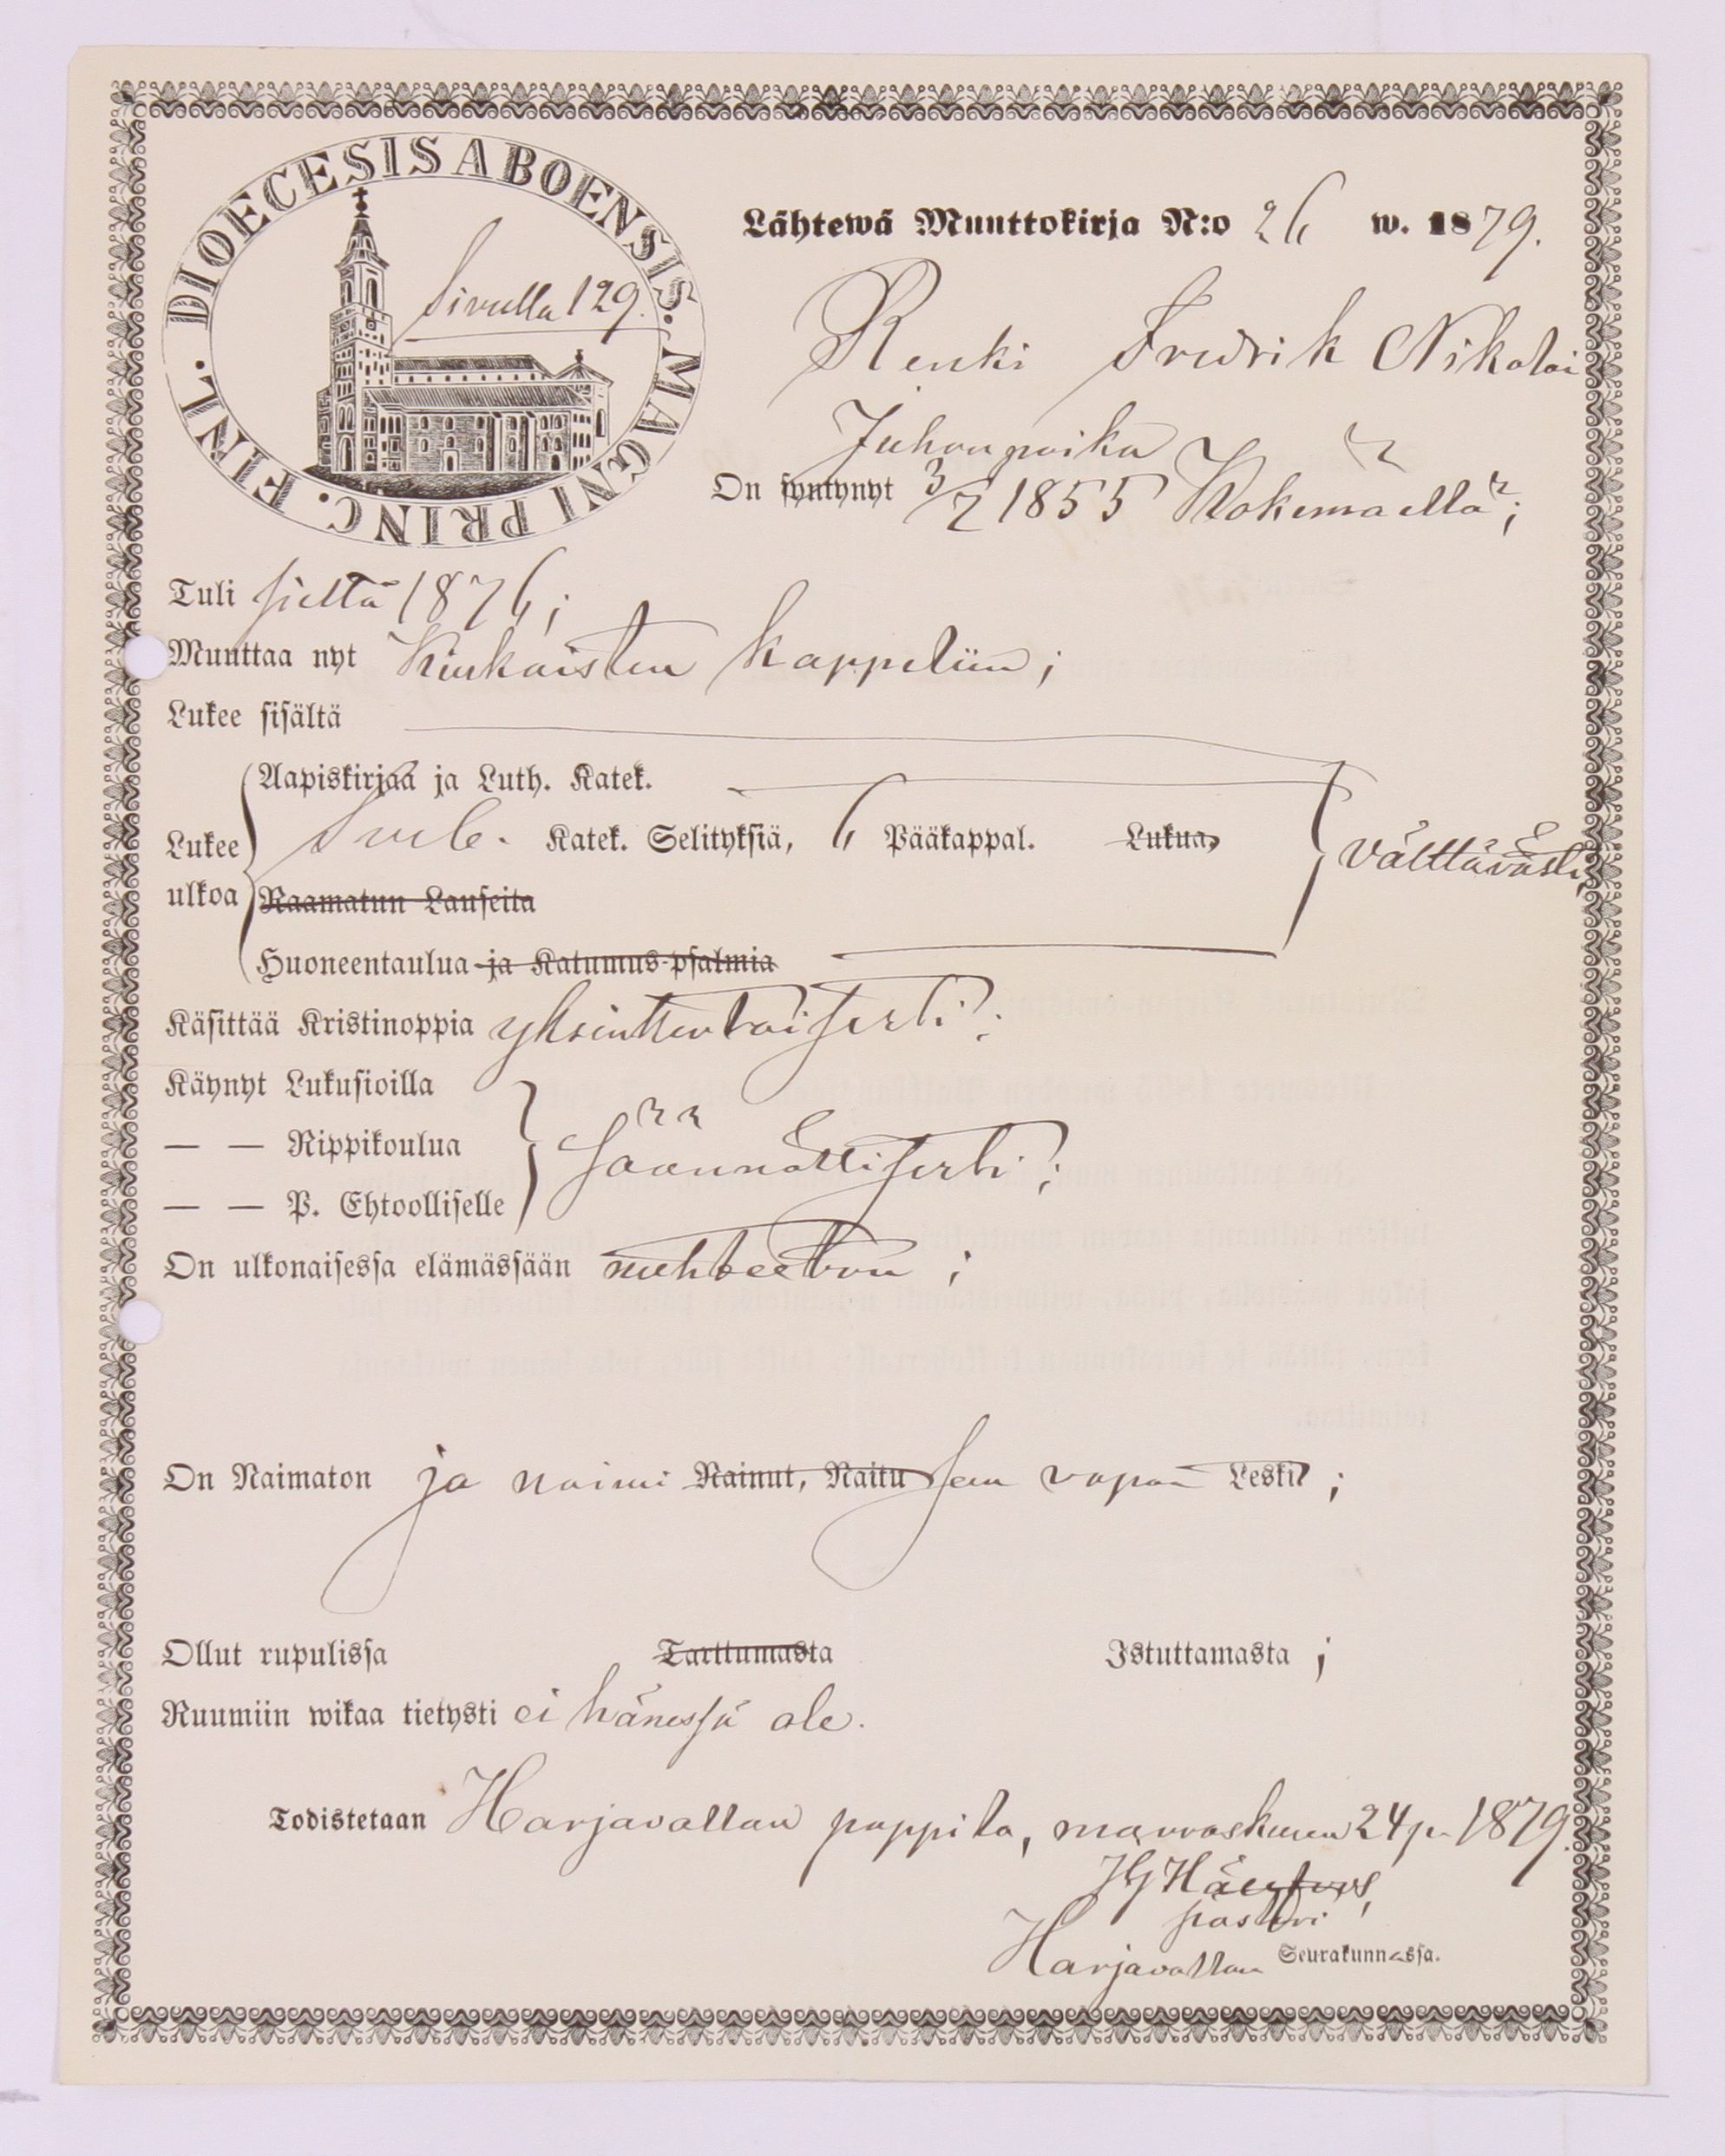 DIOECESIS ABOENSIS. MAGNI PRINC. FINL.
Sivulla 129.
Lähtewä Muuttokirja N:o 26 w. 1879.
Renki Fredrik Nikolai
Juhonpoika
On syntynyt 3/2 1855 Kokemäellä;
Tuli sieltä 1876;
Muuttaa nyt Kiukaisten kappeliin;
Lukee sisältä
Aapiskirjaa ja Luth. Katek.
Lukee ulkoa Sveb. Katek. Selityksiä, 6 Pääkappal. Lukua, välttävästi,
Raamatun Lauseita
Huoneentaulua ja Katumus-psalmia
Käsittää Kristinoppia yksinkertaisesti;
Käynyt Lukusioilla
— — Rippikoulua säännöllisesti;
— — P. Ehtoolliselle
On ulkonaisessa elämässään nuhteeton;
On Naimaton ja naimi Nainut, Naitu seen vapaa Leski;
Ollut rupulissa Tarttumasta Istuttamasta;
Ruumiin wikaa tietysti ei hänessä ole.
Todistetaan Harjavallan pappila, marraskuun 24 p. 1879.
pastori
Harjavallan Seurakunnassa.